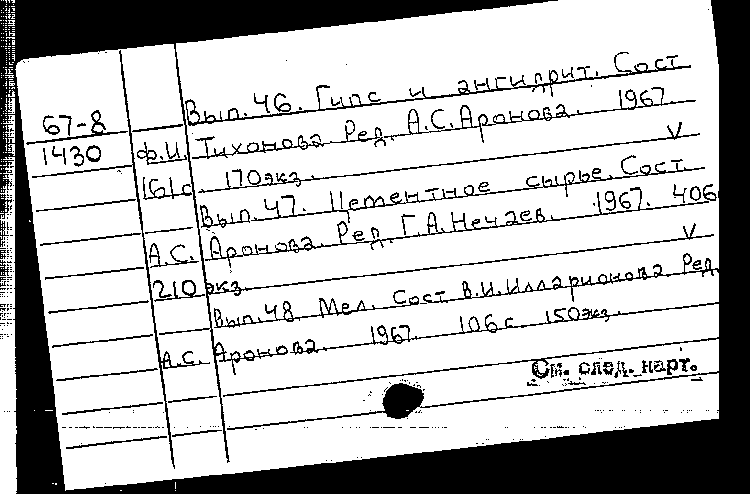 67-8
1430
Вып. 46. Гипс и ангидрит. Сост
Ф.И. Тихонова Ред. А.С. Аронова. 1967.
161с. 170экз. V
Вып. 47. Цементное сырье. Сост.
А.С. Аронова. Ред. Г.А. Нечаев. 1967. 406
210экз. V
Вып. 48 Мел. Сост В.И. Илларионова Ред.
А.С. Аронова. 1967. 106с. 150экз.
См. след. карт.